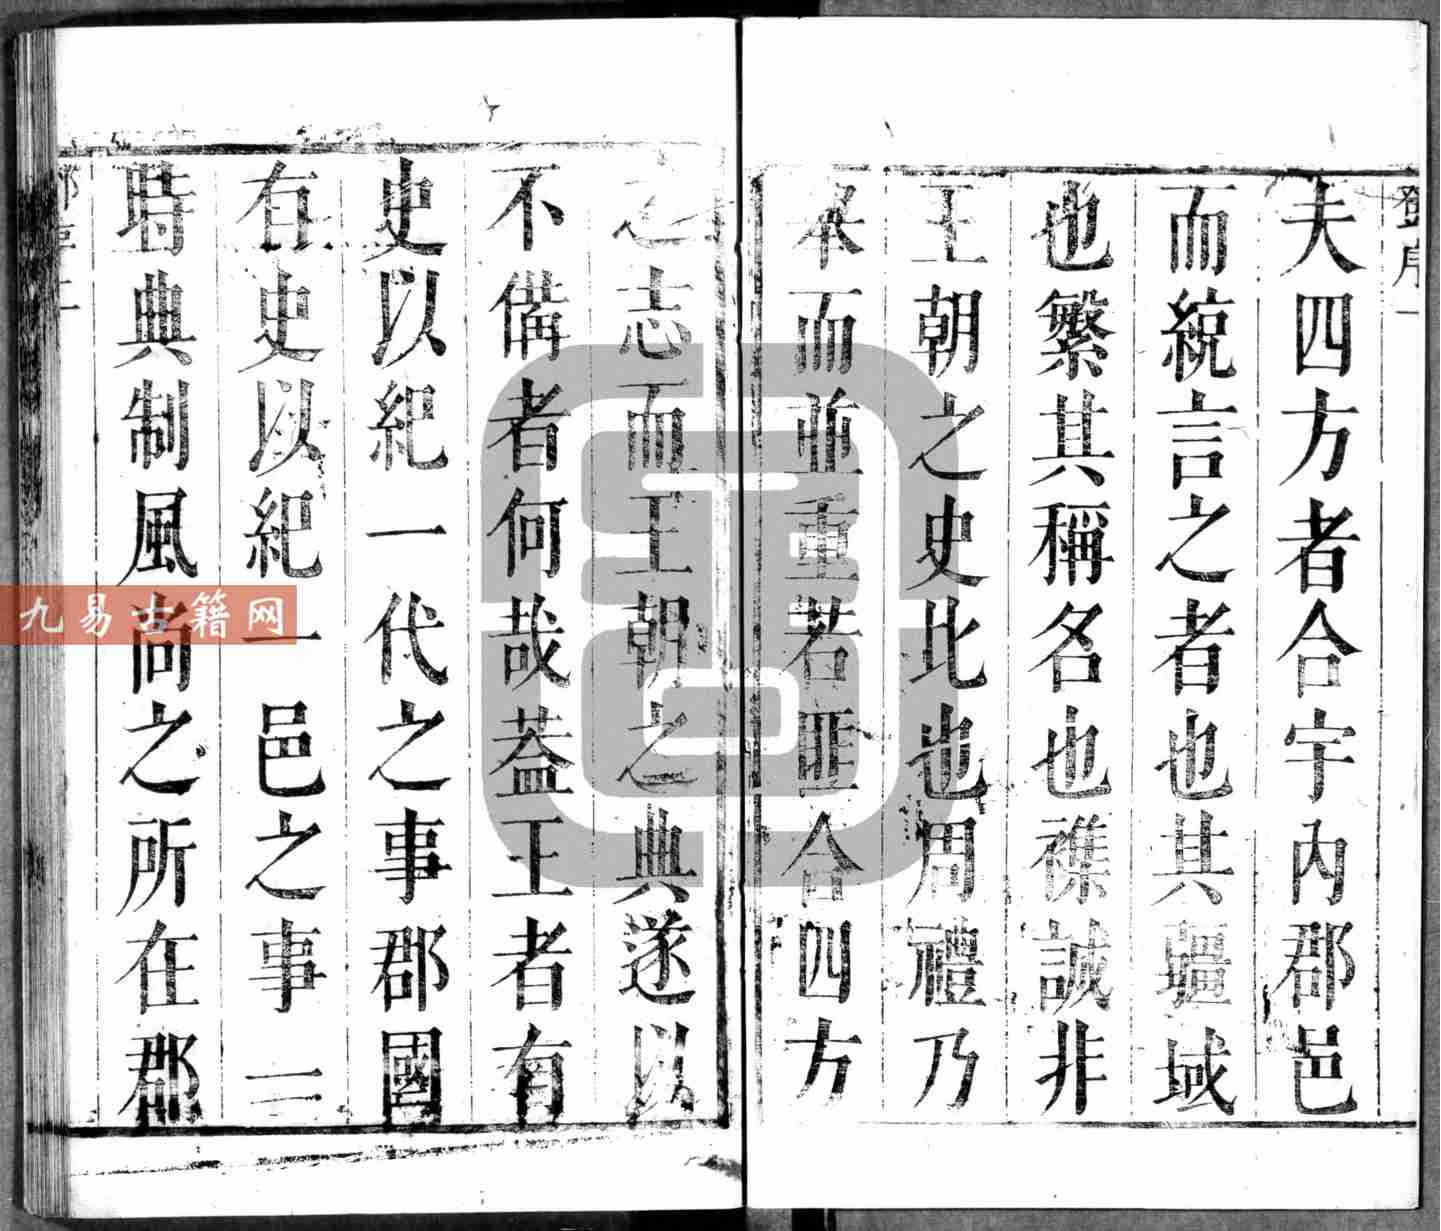 夫四方者合宇內郡邑
而統言之者也其疆域
也繁其稱名也襍誠非
王朝之史比也周禮乃
本而並重若匪合四方
之志而王朝之典遂以
不備者何哉葢王者有
史以紀一代之事郡國
有史以紀一邑之事一
時典制風尚之所在郡
九易古籍网